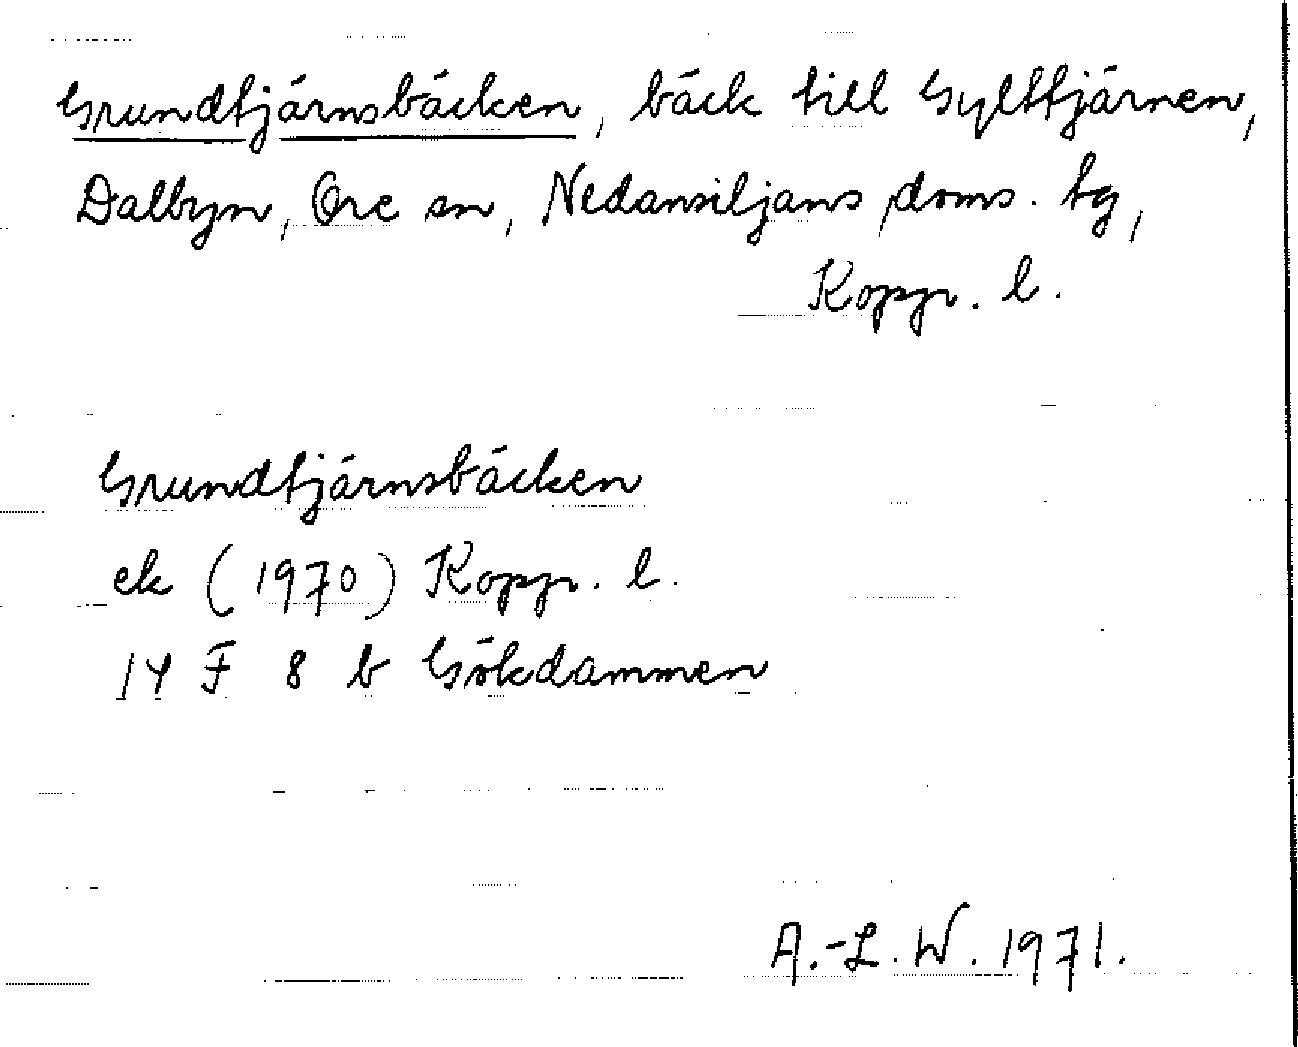 Grundtjärnsbäcken, bäck till Gylttjärnen,
Dalbyn, Ore sn, Nedansiljans doms. tg,
Koppr. l.
Grundtjärnsbäcken
ek (1970) Koppr. l.
14 F 8 b Gökdammen
A.-L. W. 1971.